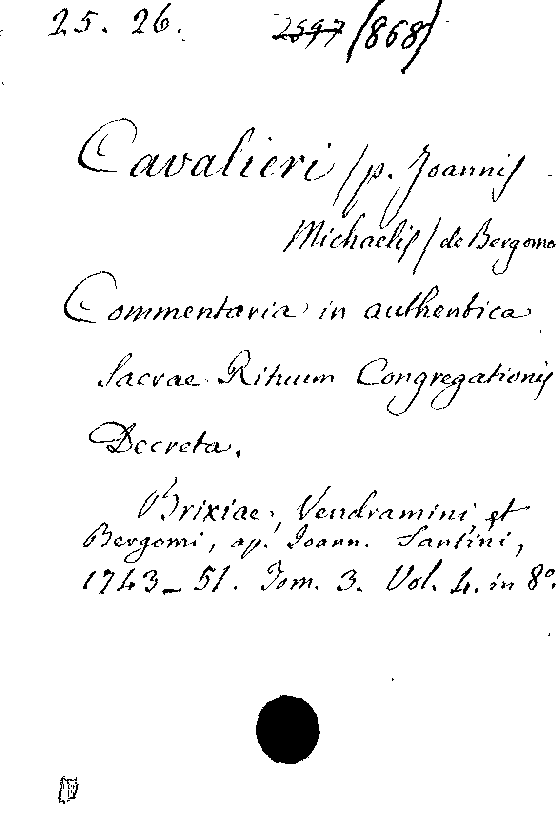 25. 26. 2597 (868)
Cavalieri /p. Joannis
Michaelis/ de Bergomo
Commentaria in authentica
Sacrae Rituum Congregationis
Decreta.
Brixiae, Vendramini, et
Bergomi, ap. Joann. Santini,
1743_51. Tom. 3. Vol. 4. in 8º.